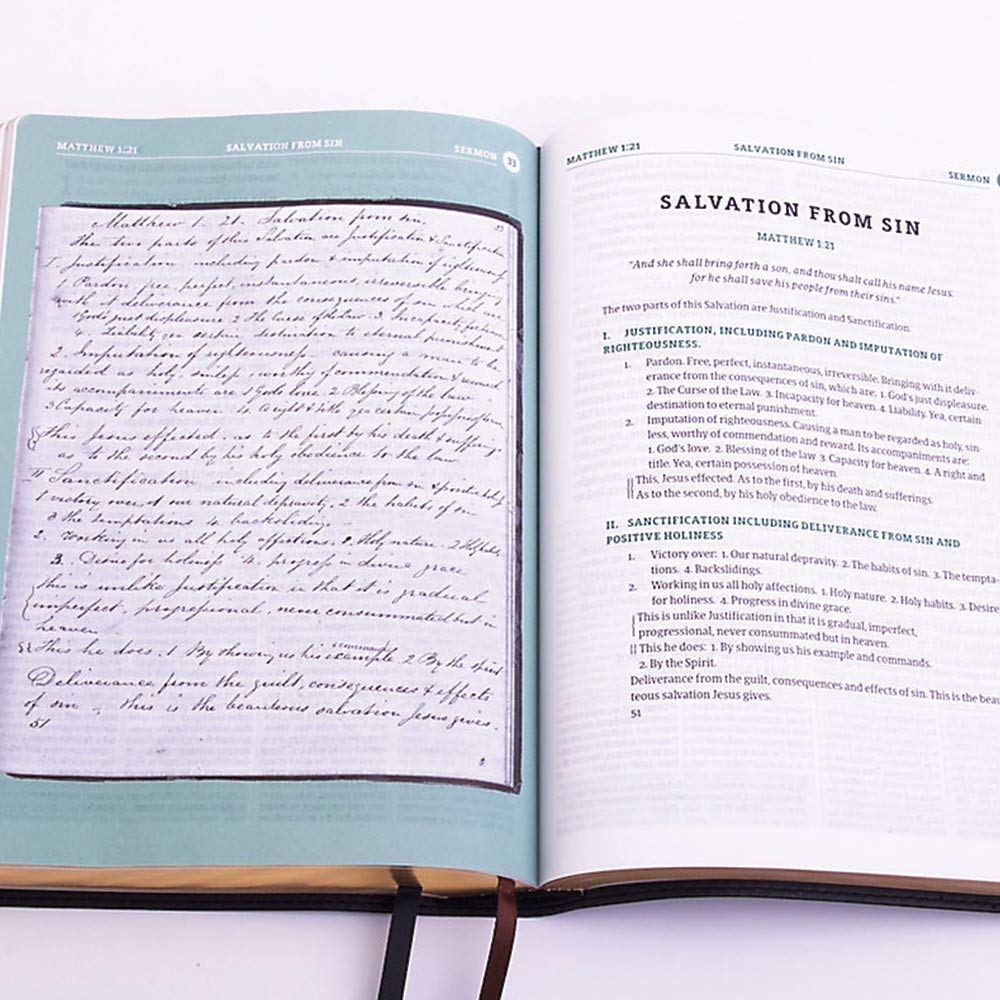 MATTHEW 1:21 SALVATION FROM SIN SERMON 33
Matthew 1. 21. Salvation from sin. 33
The two parts of this Salvation are Justification & Sanctification
I Justification including pardon & imputation of righteousness
1 Pardon free, perfect, instantaneous, irreversible bringing
with it deliverance from the consequences of sin which are
Gods just displeasure 2 The Curse of the Law. 3. Incapacity for heaven
4. Liability yea certain destination to eternal punishment
2. Imputation of righteousness - causing a man to be
regarded as holy, sinless, worthy of commendation & reward
its accompaniments are 1 Gods love. 2 Blessing of the law
3 Capacity for heaven 4 a right & title yea certain
This Jesus effected. as to the first by his death & sufferings
as to the second by his holy obedience to the law
II Sanctification including deliverance from sin & positive
1 victory over, 1 our natural depravity, 2 the habits of sin
3 the temptations 4. backsliding.
2. working in us all holy affections. 1. Holy nature. 2 Holy habits.
3. Desire for holiness 4. progress in divine grace
this is unlike Justification in that it is gradual
imperfect, progressional, never consummated but in
heaven.
This he does. 1 By showing us his example command 2 By the spirit
Deliverance from the guilt, consequences & effects
of sin - this is the beauteous salvation Jesus gives.
51
MATTHEW 1:21 SALVATION FROM SIN SERMON
SALVATION FROM SIN
MATTHEW 1:21
"And she shall bring forth a son, and thou shalt call his name Jesus:
for he shall save his people from their sins."
The two parts of this Salvation are Justification and Sanctification.
I. JUSTIFICATION, INCLUDING PARDON AND IMPUTATION OF
RIGHTEOUSNESS.
1. Pardon. Free, perfect, instantaneous, irreversible. Bringing with it deliv-
erance from the consequences of sin, which are. 1. God's just displeasure.
2. The Curse of the Law. 3. Incapacity for heaven. 4. Liability. Yea, certain
destination to eternal punishment.
2. Imputation of righteousness. Causing a man to be regarded as holy, sin-
less, worthy of commendation and reward. Its accompaniments are:
1. God's love. 2. Blessing of the law 3. Capacity for heaven. 4. A right and
title. Yea, certain possession of heaven.
This, Jesus effected. As to the first, by his death and sufferings.
As to the second, by his holy obedience to the law.
II. SANCTIFICATION INCLUDING DELIVERANCE FROM SIN AND
POSITIVE HOLINESS
1. Victory over: 1. Our natural depravity. 2. The habits of sin. 3. The tempta-
tions. 4. Backslidings.
2. Working in us all holy affections. 1. Holy nature. 2. Holy habits. 3. Desire
for holiness. 4. Progress in divine grace.
This is unlike Justification in that it is gradual, imperfect,
progressional, never consummated but in heaven.
This he does: 1. By showing us his example and commands.
2. By the Spirit.
Deliverance from the guilt, consequences and effects of sin. This is the beau-
teous salvation Jesus gives.
51